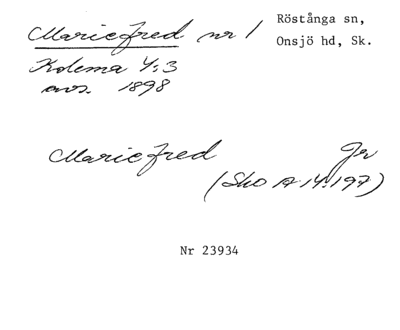 Mariefred nr 1
Röstånga sn,
Onsjö hd, Sk.
Kolema 4:3
avs. 1898
Mariefred Jr
(Sko A 14:197)
Nr 23934